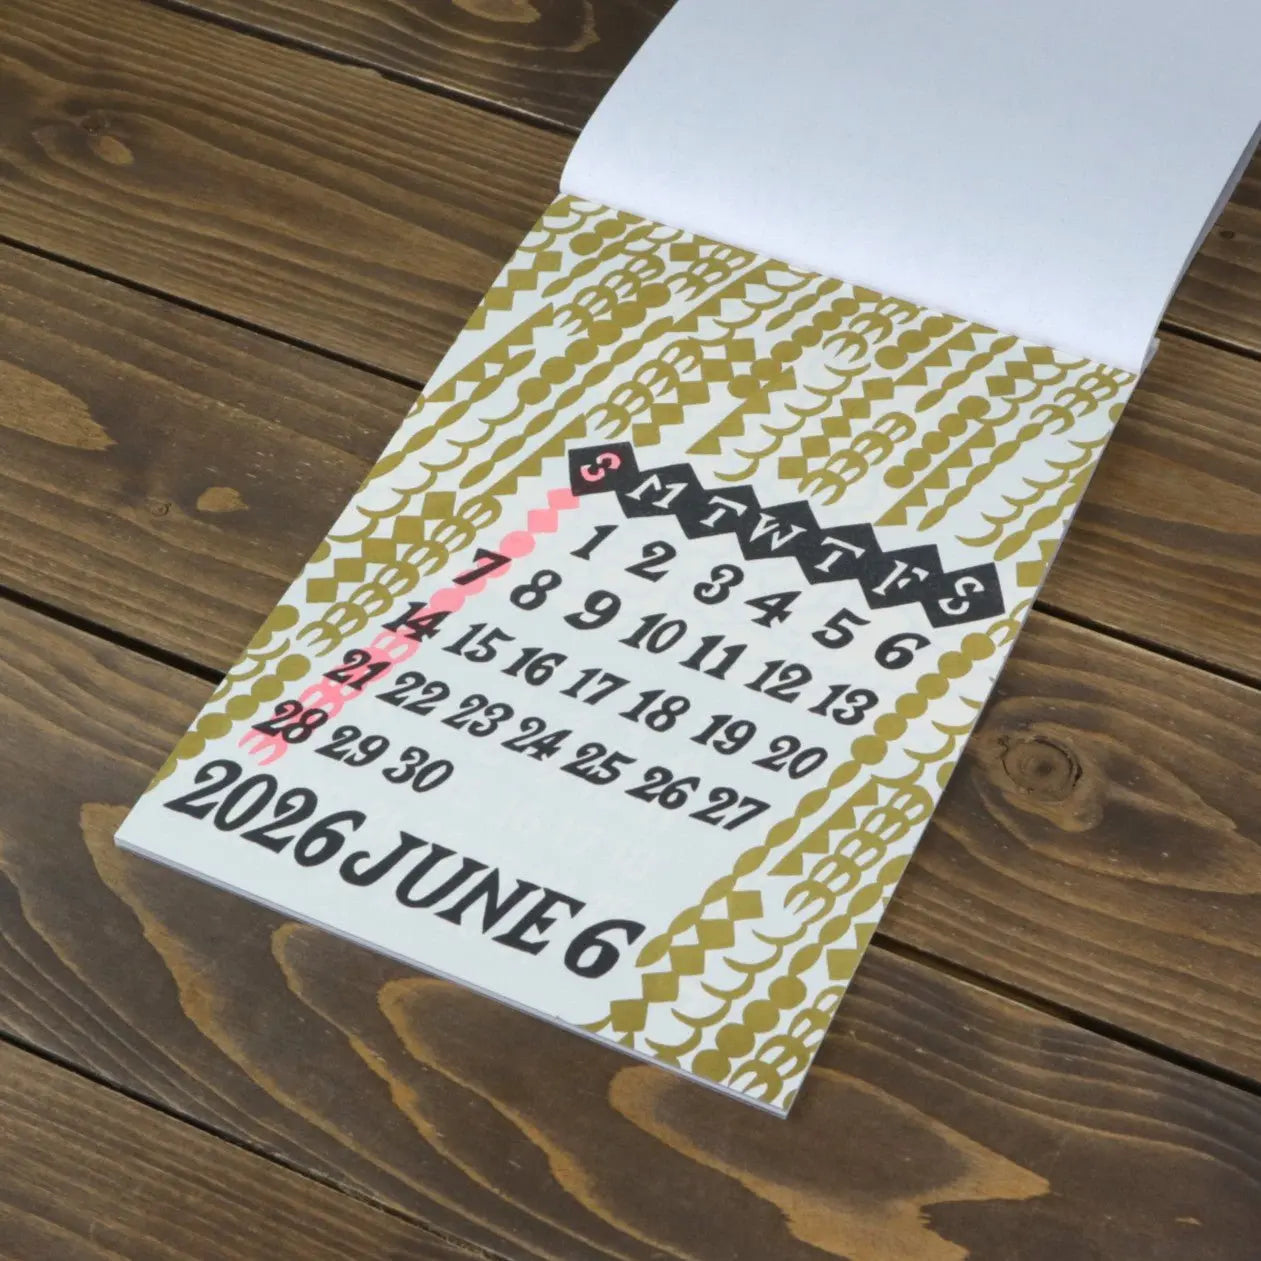 S M T W T F S
1 2 3 4 5 6
7 8 9 10 11 12 13
14 15 16 17 18 19 20
21 22 23 24 25 26 27
28 29 30
2026 JUNE 6